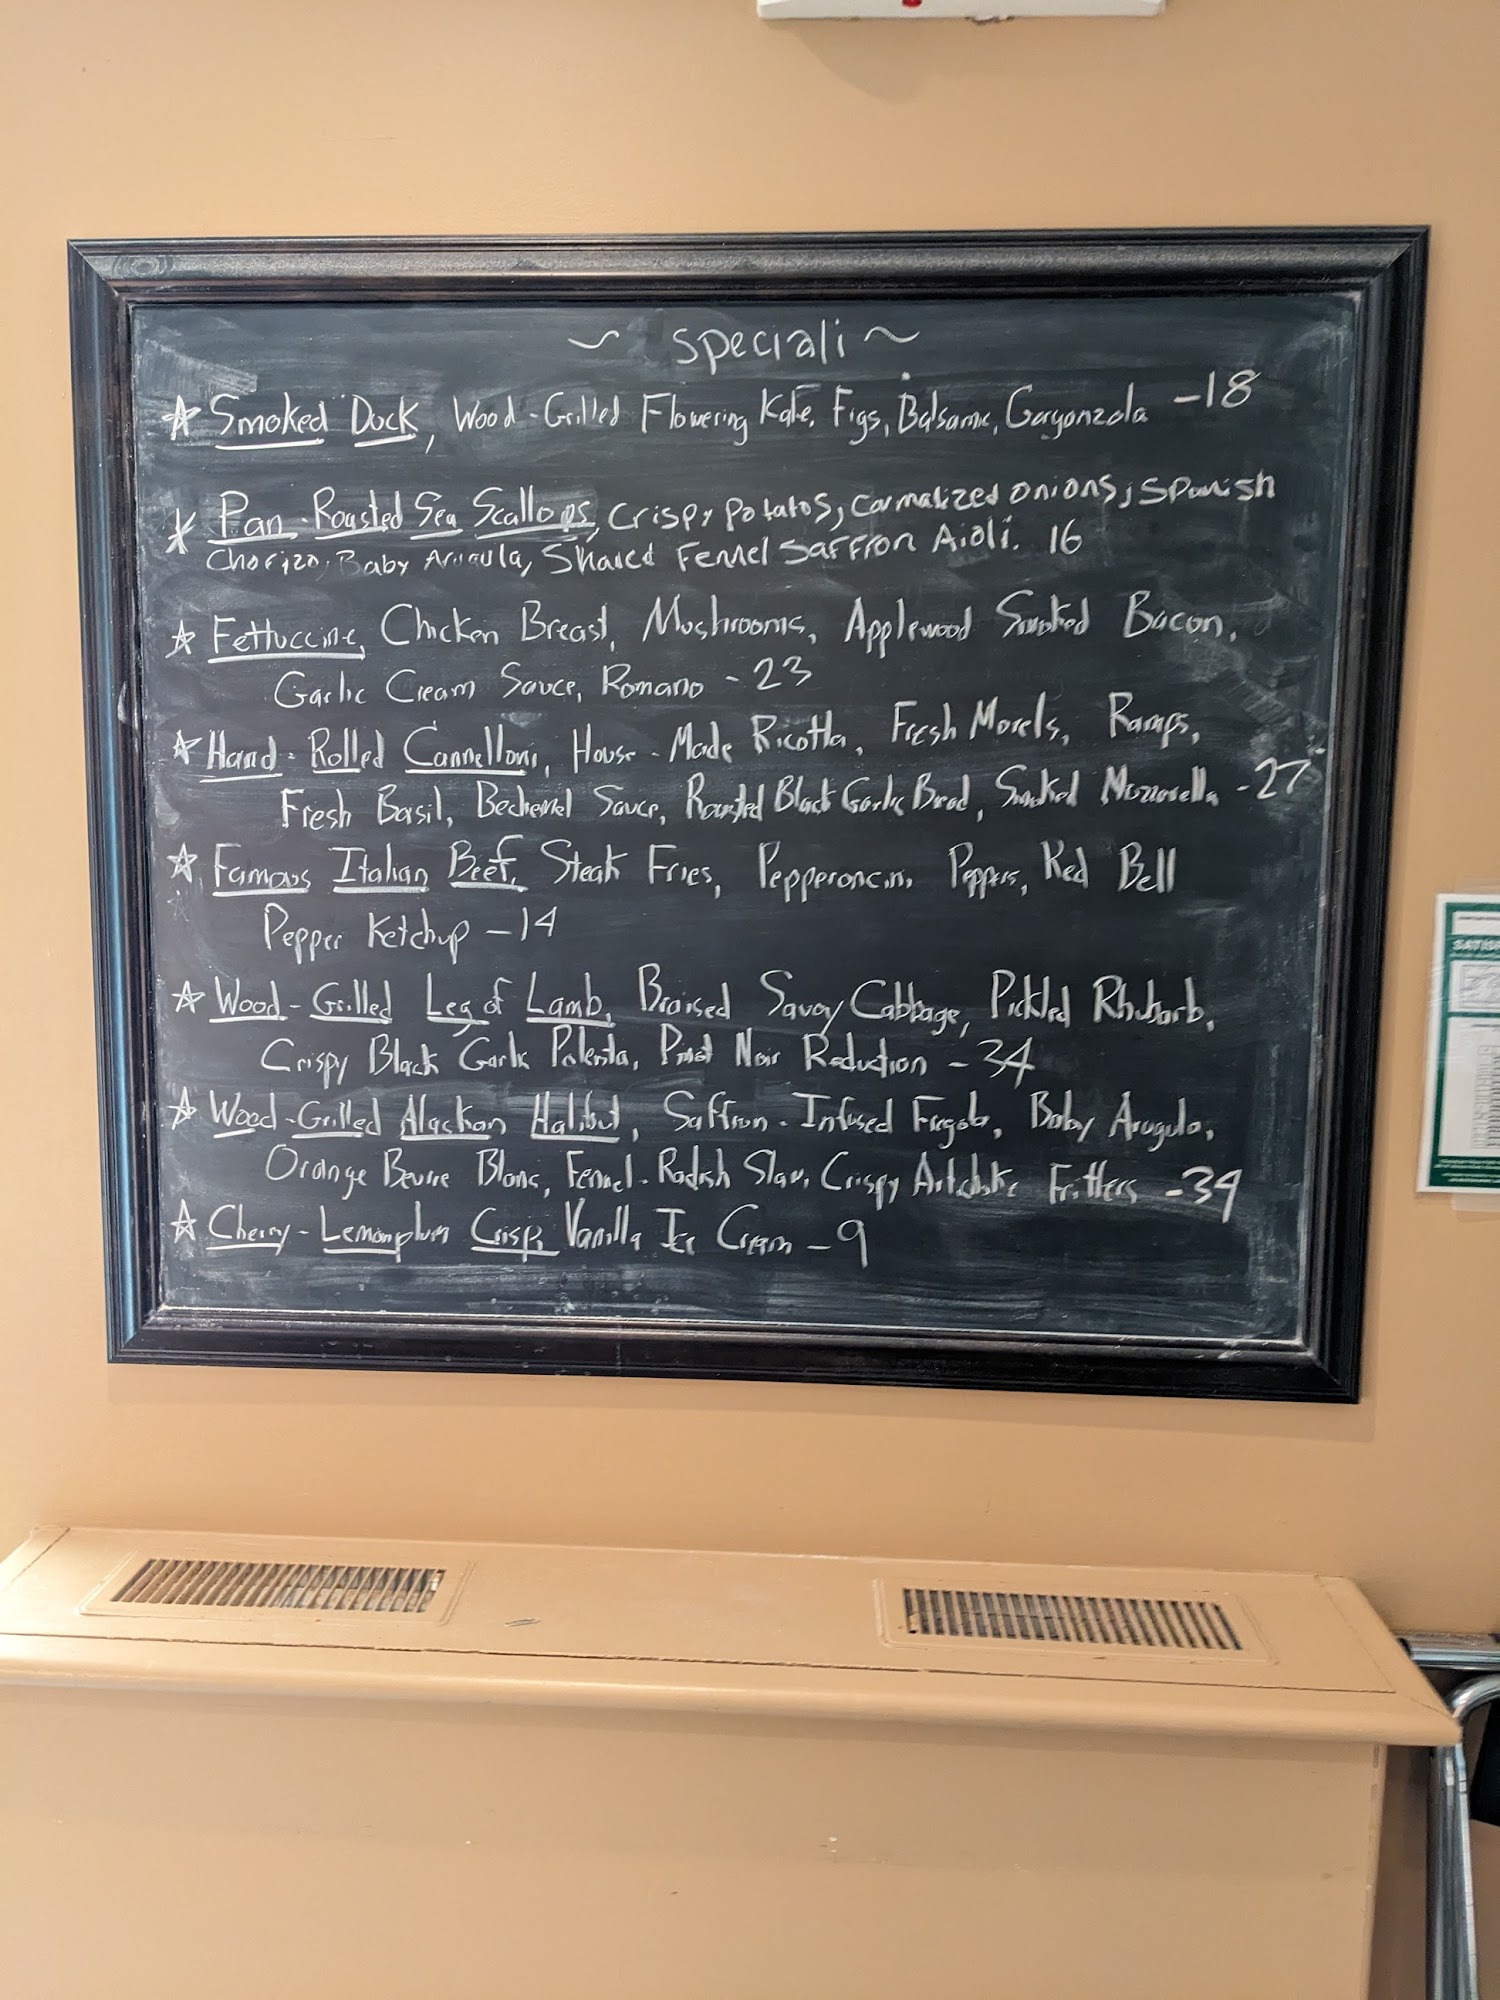 ~ speciali ~
☆ Smoked Duck, Wood-Grilled Flowering Kale, Figs, Balsamic, Gorgonzola -18
☆ Pan-Roasted Sea Scallops, Crispy Potatos, Carmalized Onions, Spanish
Chorizo, Baby Arugula, Shaved Fennel Saffron Aioli. 16
☆ Fettuccine, Chicken Breast, Mushrooms, Applewood Smoked Bacon,
Garlic Cream Sauce, Romano -23
☆ Hand-Rolled Cannelloni, House-Made Ricotta, Fresh Morels, Ramps,
Fresh Basil, Bechemel Sauce, Roasted Black Garlic Bread, Smoked Mozzarella -27
☆ Famous Italian Beef, Steak Fries, Pepperoncini Peppers, Red Bell
Pepper Ketchup -14
☆ Wood-Grilled Leg of Lamb, Braised Savoy Cabbage, Pickled Rhubarb,
Crispy Black Garlic Polenta, Pinot Noir Reduction -34
☆ Wood-Grilled Alaskan Halibut, Saffron-Infused Fregola, Baby Arugula,
Orange Beurre Blanc, Fennel-Radish Slaw, Crispy Artichoke Fritters -39
☆ Cherry-Lemonplum Crisp, Vanilla Ice Cream -9